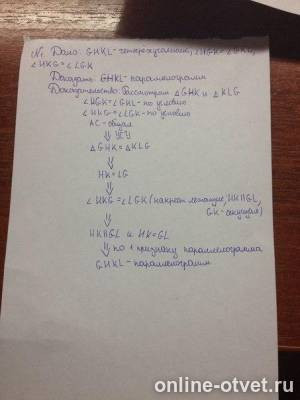 №1. Дано: GHKL - четырехугольник, ∠HGK = ∠GKL,
∠HKG = ∠LGK
Доказать: GHKL - параллелограмм
Доказательство: Рассмотрим △GHK и △KLG
∠HGK = ∠GKL - по условию
∠HKG = ∠LGK - по условию
AC - общая
⇓
△GHK = △KLG
⇓
HK = LG
⇓
∠HKG = ∠LGK (накрест лежащие, HK || GL,
GK - секущая)
⇓
HK || GL и HK = GL
⇓ по 1 признаку параллелограмма
GHKL - параллелограмм
online-otvet.ru